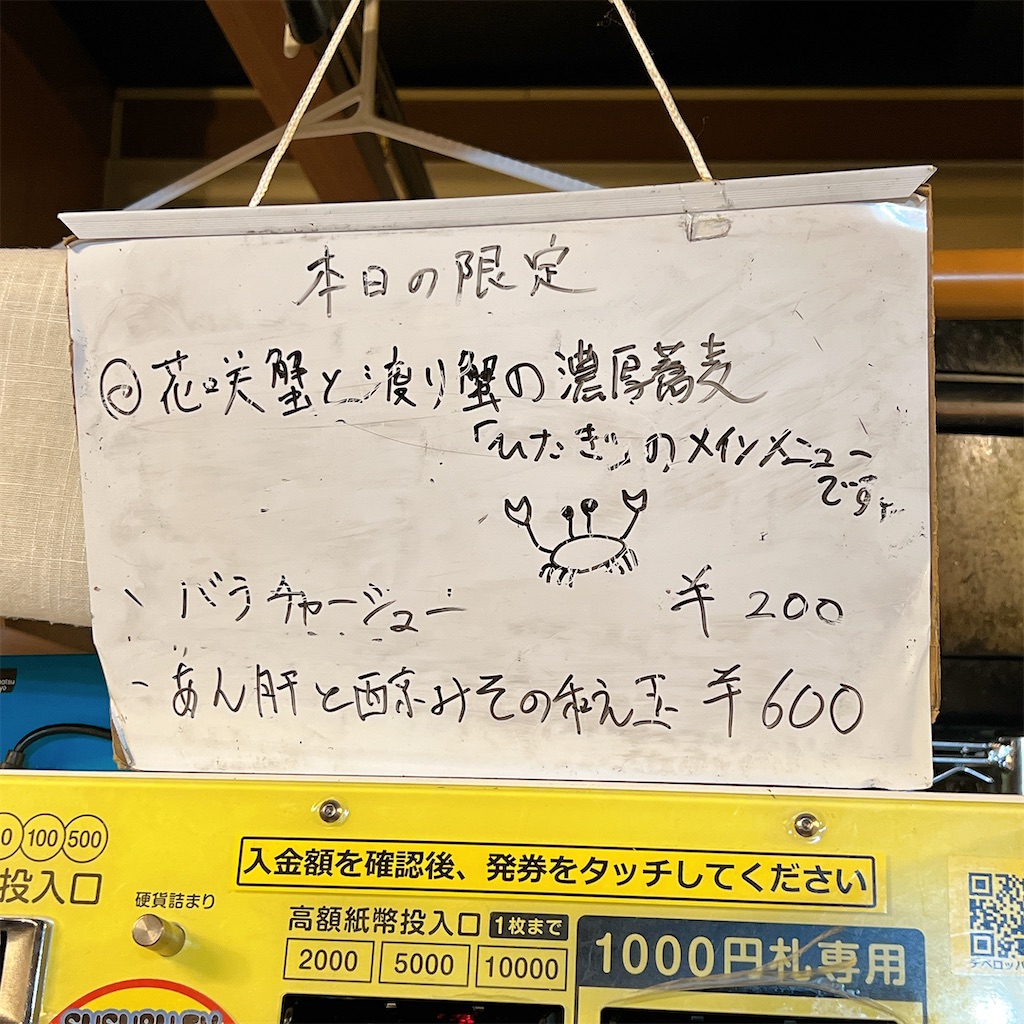 本日の限定
◎花咲蟹と渡り蟹の濃厚蕎麦
「ひたぎ」のメインメニュー
です
、バラチャーシュー ¥200
- あん肝と西京みその和え玉 ¥600
100 500
投入口
硬貨詰まり
入金額を確認後、発券をタッチしてください
高額紙幣投入口 1枚まで
2000 5000 10000
1000円札専用